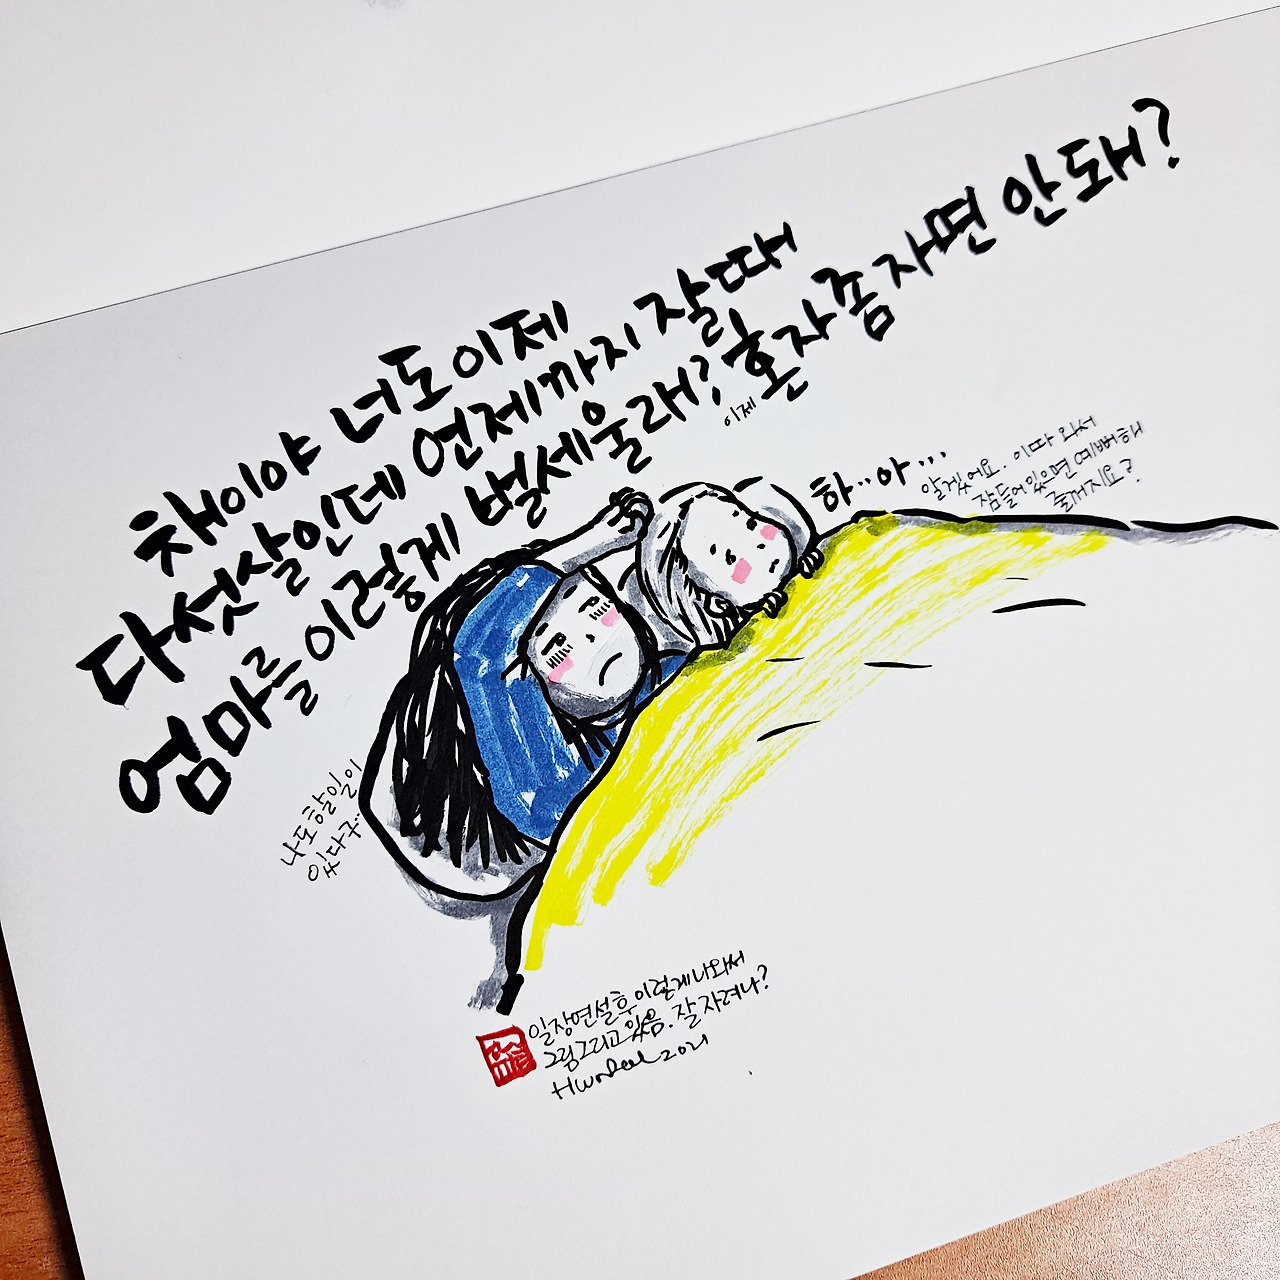 채이야 너도 이제
다섯살인데 언제까지 잘때
엄마를 이렇게 벌세울래? 이제 혼자 좀 자면 안돼?
하..아...
알겠어요. 이따 와서
잠들어 있으면 예뻐해
줄꺼지요?
나도 할일이
있다구..
일장연설후 이렇게 나와서
그림그리고 있음. 잘 자려나?
2021